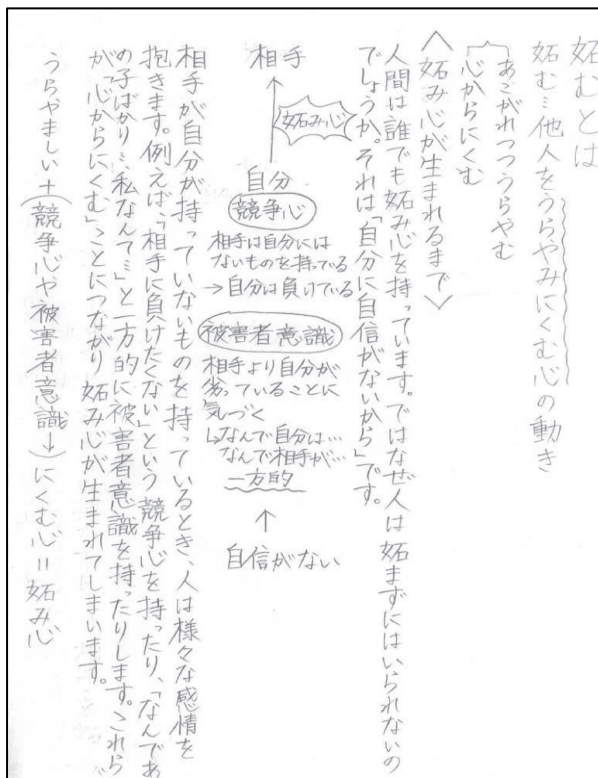 妬むとは
妬む…他人をうらやみにくむ心の動き
あこがれつつうらやむ
心からにくむ
〈妬み心が生まれるまで〉
人間は誰でも妬み心を持っています。ではなぜ人は妬まずにはいられないの
でしょうか。それは「自分に自信がないから」です。
相手
妬み心
自分
競争心
相手は自分には
ないものを持ってる
→自分は負けている
被害者意識
相手より自分が
劣っていることに
気づく
↳なんで自分は…
なんで相手が…
一方的
↑
自信がない
相手が自分が持っていないものを持っているとき、人は様々な感情を
抱きます。例えば、「相手に負けたくない」という競争心を持ったり、「なんであ
の子ばかり…、私なんて…」と一方的に被害者意識を持ったりします。これら
が「心からにくむ」ことにつながり妬み心が生まれてしまいます。
うらやましい+(競争心や被害者意識↓)にくむ心=妬み心